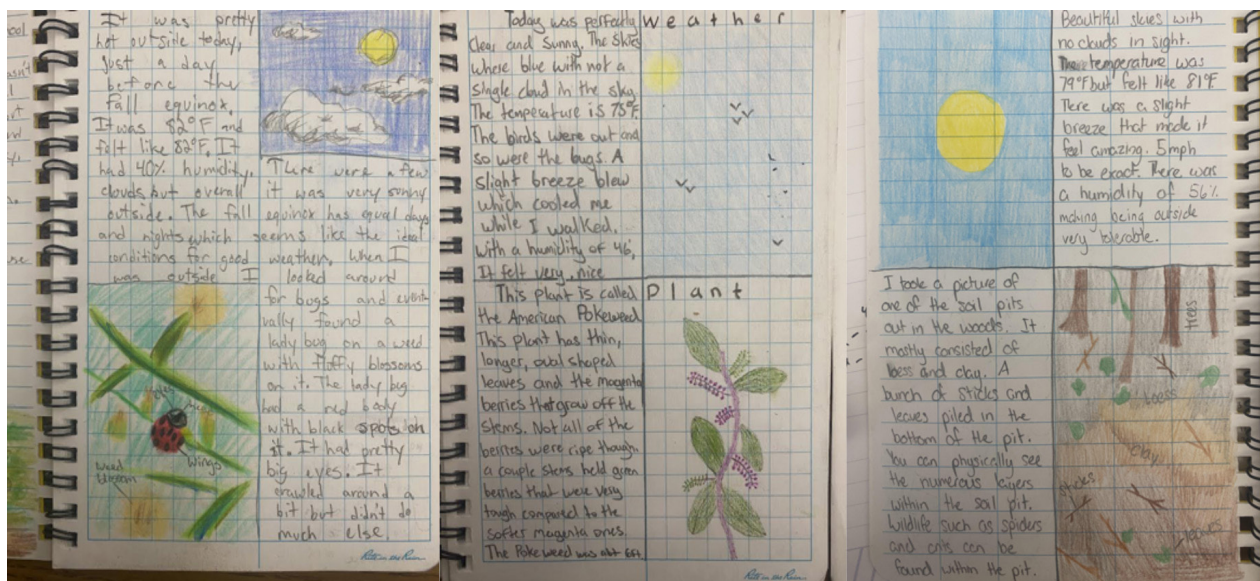 It was pretty
hot outside today,
just a day
before the
fall equinox.
It was 82°F and
felt like 82°F. It
had 40% humidity.
There were a few
clouds, but overall it was very sunny
outside. The fall equinox has equal days
and nights which seems like the ideal
conditions for good weather. When I
was outside I looked around
for bugs and event-
ually found a
lady bug on a weed
with fluffy blossoms
on it. The lady bug
had a red body
with black spots on
it. It had pretty
big eyes. It
crawled around a
bit but didn't do
much else.
eyes
Head
Wings
weed
blossom
Rite in the Rain
Today was perfectly
Clear and Sunny. The Skies
where blue with not a
single cloud in the sky.
The temperature is 75°F.
The birds were out and
so were the bugs. A
slight breeze blew
which cooled me
while I walked.
With a humidity of 46%,
It felt very nice
weather
This plant is called
the American Pokeweed
This plant has thin,
longer, oval shaped
leaves and the magenta
berries that grow off the
stems. Not all of the
berries were ripe though
a couple stems held green
berries that were very
tough compared to the
softer magenta ones.
The Pokeweed was abt 6ft.
Plant
Rite in the Rain
Beautiful skies with
no clouds in sight.
The temperature was
79°F but felt like 81°F
There was a slight
breeze that made it
feel amazing. 5mph
to be exact. There was
a humidity of 56%
making being outside
very tolerable.
I took a picture of
one of the soil pits
out in the woods. It
mostly consisted of
loess and clay. A
bunch of sticks and
leaves piled in the
bottom of the pit.
You can physically see
the numerous layers
within the soil pit.
wildlife such as spiders
and ants can be
found within the pit.
trees
Loess
clay
sticks
leaves